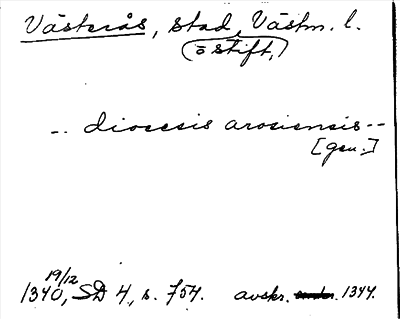 Västerås, stad, Västm. l.
(o stift,)
-- diocesis arosiensis --
[gen.]
19/12
1340, SD 4, s. 754. avskr. 1344.